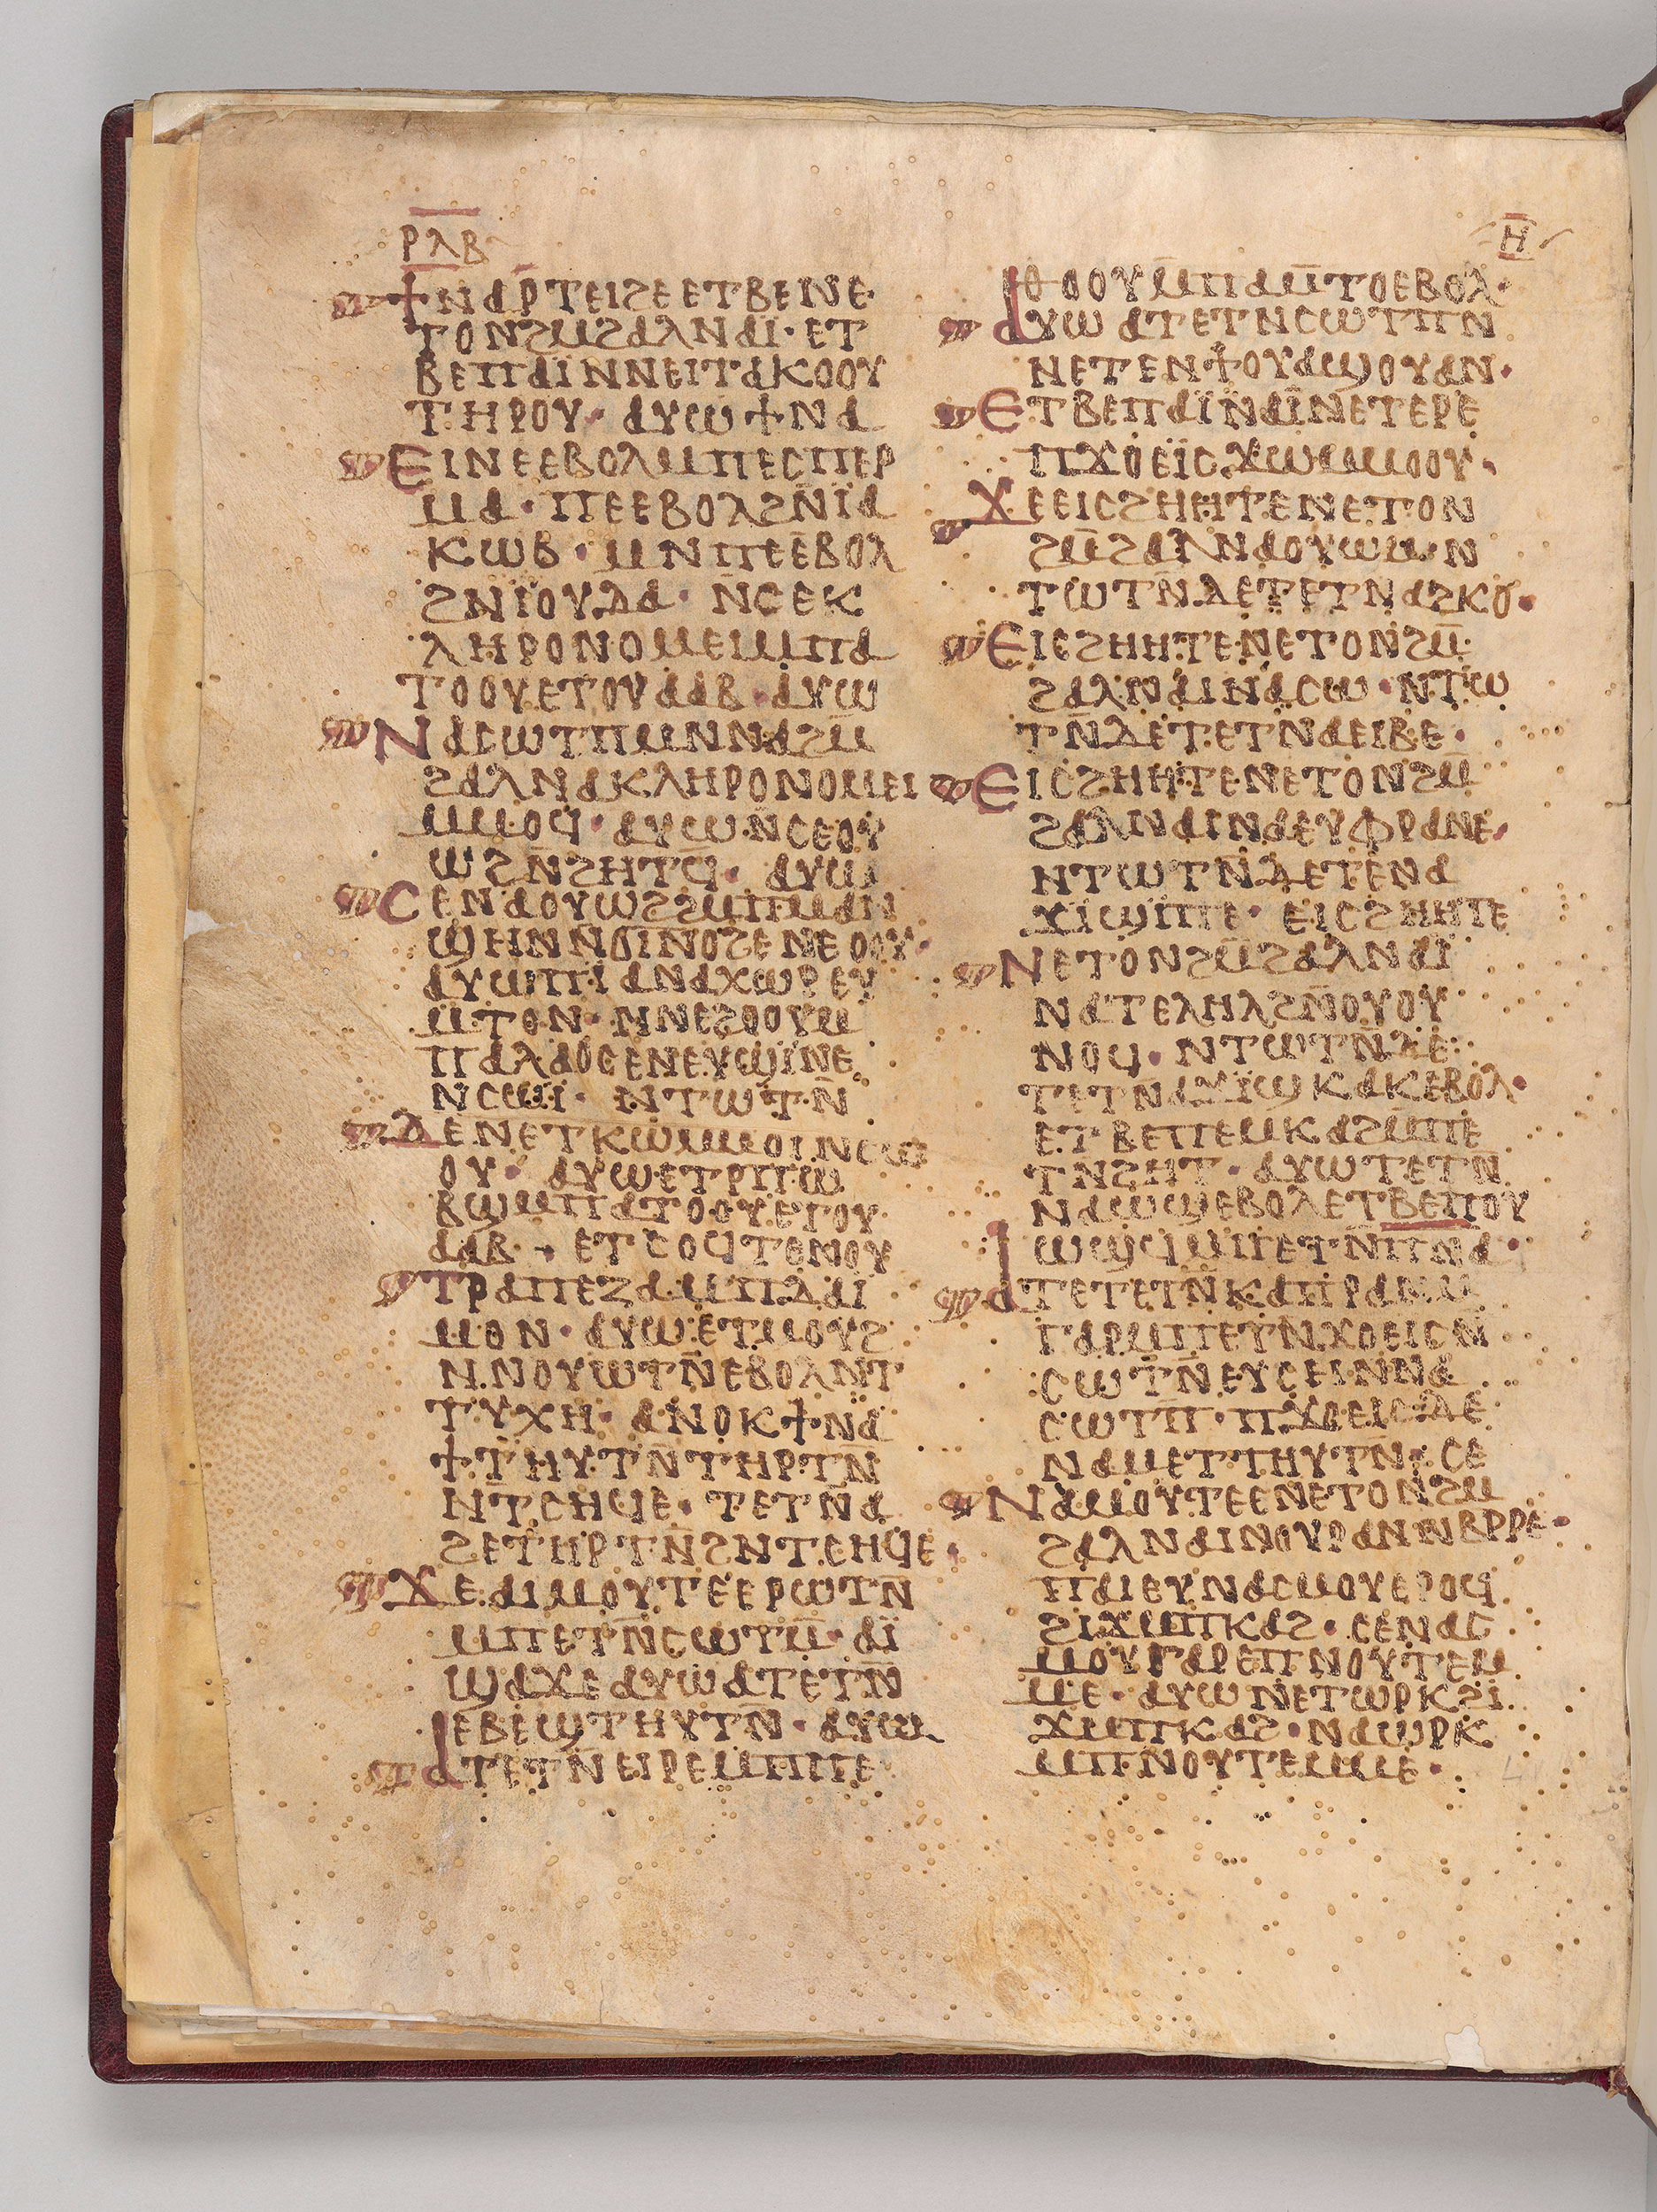 ⲣⲗⲃ
ⲏ
ϯⲛⲁⲣⲧⲉⲓϩⲉⲉⲧⲃⲉⲛⲉ
ⲧⲟⲛϩⲙϩⲁⲗⲛⲁⲓ̈· ⲉⲧ
ⲃⲉⲡⲁⲓ̈ⲛⲛⲉⲓⲧⲁⲕⲟⲟⲩ
ⲧⲏⲣⲟⲩ· ⲁⲩⲱϯⲛⲁ
ⲉⲓⲛⲉⲉⲃⲟⲗⲙⲡⲉⲥⲡⲉⲣ
ⲙⲁ· ⲡⲉⲉⲃⲟⲗϩⲛ̄ⲓ̈ⲁ
ⲕⲱⲃ· ⲙⲛⲡⲉⲉⲃⲟⲗ
ϩⲛⲓ̈ⲟⲩⲇⲁ· ⲛ̄ⲥⲉⲕ
ⲗⲏⲣⲟⲛⲟⲙⲉⲓⲙⲡⲁ
ⲧⲟⲟⲩⲉⲧⲟⲩⲁⲁⲃ· ⲁⲩⲱ
ⲛⲁⲥⲱⲧⲡⲙⲛⲛⲁϩⲙ̄
ϩⲁⲗⲛⲁⲕⲗⲏⲣⲟⲛⲟⲙⲉⲓ
ⲙⲙⲟϥ· ⲁⲩⲱⲛⲥⲉⲟⲩ
ⲱϩⲛ̄ϩⲏⲧϥ̄· ⲁⲩⲱ
ⲥⲉⲛⲁⲟⲩⲱϩϩⲙⲡⲙⲁⲛ
ϣⲏⲛⲛ̄ϭⲓⲛⲟϩⲉⲛⲉⲟⲟⲩ·
ⲁⲩⲱⲡⲓⲁⲛⲁⲭⲱⲣⲉⲩ
ⲙⲧⲟⲛ· ⲛⲛⲉϩⲟⲟⲩⲙ
ⲡⲁⲗⲁⲟⲥⲉⲛⲉⲩϣⲓⲛⲉ
ⲛ̄ⲥⲱⲓ· ⲛⲧⲱⲧⲛ̄
ⲇⲉⲛⲉⲧⲕⲱⲙⲙⲟⲓⲛⲥⲱ
ⲟⲩ· ⲁⲩⲱⲉⲧⲣⲡⲱ
ⲃϣⲙⲡⲁⲧⲟⲟⲩⲉⲧⲟⲩ
ⲁⲁⲃ· ⲉⲧⲥⲟϥⲧⲉⲛⲟⲩ
ⲧⲣⲁⲡⲉⲍⲁⲙⲡⲇⲁⲓ
ⲙⲟⲛ· ⲁⲩⲱⲉⲧⲙⲟⲩϩ
ⲛⲛⲟⲩⲱⲧⲛ̄ⲉⲃⲟⲗⲛⲧ
ⲧⲩⲭⲏ· ⲁⲛⲟⲕϯⲛⲁ
ϯⲧⲏⲩⲧⲛ̄ⲧⲏⲣⲧⲛ̄
ⲛⲧⲥⲏϥⲉ· ⲧⲉⲧⲛ̄ⲁ
ϩⲉⲧⲏⲣⲧⲛ̄ϩⲛⲧⲥⲏϥⲉ·
ϫⲉⲁⲓⲙⲟⲩⲧⲉⲉⲣⲱⲧⲛ̄
ⲙⲡⲉⲧⲛ̄ⲥⲱⲧⲙ̄· ⲁⲓ̈
ϣⲁϫⲉⲁⲩⲱⲁⲧⲉⲧⲛ̄
ⲉⲃⲉϣⲧⲏⲩⲧⲛ· ⲁⲩⲱ
ⲁⲧⲉⲧⲛ̄ⲉⲓⲣⲉⲙⲡⲡⲉ
ⲑⲟⲟⲩⲙ̄ⲡⲁⲙ̄ⲧⲟⲉⲃⲟⲗ·
ⲁⲩⲱⲁⲧⲉⲧⲛⲥⲱⲧⲡⲛ
ⲛⲉⲧⲉⲛϯⲟⲩⲁϣⲟⲩⲁⲛ·
ⲉⲧⲃⲉⲡⲁⲓ̈ⲛⲁⲓ̈ⲛⲉⲧⲉⲣⲉ
ⲡϫⲟⲉⲓⲥϫⲱⲙⲙⲟⲟⲩ·
ϫⲉⲉⲓⲥϩⲏⲏⲧⲉⲛⲉⲧⲟⲛ
ϩⲙ̄ϩⲁⲗⲛⲁⲟⲩⲱⲙ·ⲛ
ⲧⲱⲧⲛ̄ⲇⲉⲧⲉⲧⲛⲁϩⲕⲟ·
ⲉⲓⲥϩⲏⲏⲧⲉⲛⲉⲧⲟⲛϩⲙ̄
ϩⲁⲗⲛⲁⲓⲛⲁⲥⲱ· ⲛⲧⲱ
ⲧⲛ̄ⲇⲉⲧⲉⲧⲛⲁⲉⲓⲃⲉ·
ⲉⲓⲥϩⲏⲏⲧⲉⲛⲉⲧⲟⲛϩⲙ̄
ϩⲁⲗⲛⲁⲓⲛⲁⲉⲩⲫⲣⲁⲛⲉ·
ⲛⲧⲱⲧⲛ̄ⲇⲉⲧⲉⲛⲁ
ϫⲓϣⲓⲡⲉ· ⲉⲓⲥϩⲏⲏⲧⲉ
ⲛⲉⲧⲟⲛϩⲙ̄ϩⲁⲗⲛⲁⲓ̈
ⲛⲁⲧⲉⲗⲏⲗϩⲛ̄ⲟⲩⲟⲩ
ⲛⲟϥ· ⲛⲧⲱⲧⲛ̄ⲇⲉ
ⲧⲉⲧⲛⲁϫⲓϣⲕⲁⲕⲉⲃⲟⲗ·
ⲉⲧⲃⲉⲡⲉⲙⲕⲁϩⲙ̄ⲡⲉ
ⲧⲛϩⲏⲧ· ⲁⲩⲱⲧⲉⲧⲛ
ⲛⲁⲱϣⲉⲃⲟⲗⲉⲧⲃⲉⲡⲟⲩ
ⲱϣϥⲙⲡⲉⲧⲛ̄ⲡⲛⲁ·
ⲁⲧⲉⲧⲉⲧⲛ̄ⲕⲁⲡⲣⲁⲛⲙ
ⲅⲁⲣⲙⲡⲉⲩⲛϫⲟⲉⲓⲥⲛ
ⲥⲱⲧⲛ̄ⲉⲩⲥⲉⲓⲛⲛⲁ
ⲥⲱⲧⲡ· ⲡϫⲟⲉⲓⲥⲇⲉ
ⲛⲁⲙⲉⲧⲧⲏⲩⲧⲛ̄· ⲥⲉ
ⲛⲁⲙⲟⲩⲧⲉⲉⲛⲉⲧⲟⲛϩⲙ
ϩⲁⲗⲛⲁⲓⲛⲟⲩⲣⲁⲛⲛⲃⲣⲣⲉ·
ⲡⲁⲓⲉⲩⲛⲁⲥⲙⲟⲩⲉⲣⲟϥ
ϩⲓϫⲙⲡⲕⲁϩ· ⲥⲉⲛⲁⲥ
ⲙⲟⲩⲅⲁⲣⲉⲡⲛⲟⲩⲧⲉⲙ
ⲙⲉ· ⲁⲩⲱⲛⲉⲧⲱⲣⲕϩⲓ
ϫⲙⲡⲕⲁϩ· ⲛⲁⲱⲣⲕ
ⲙⲡⲛⲟⲩⲧⲉⲙⲙⲉ·